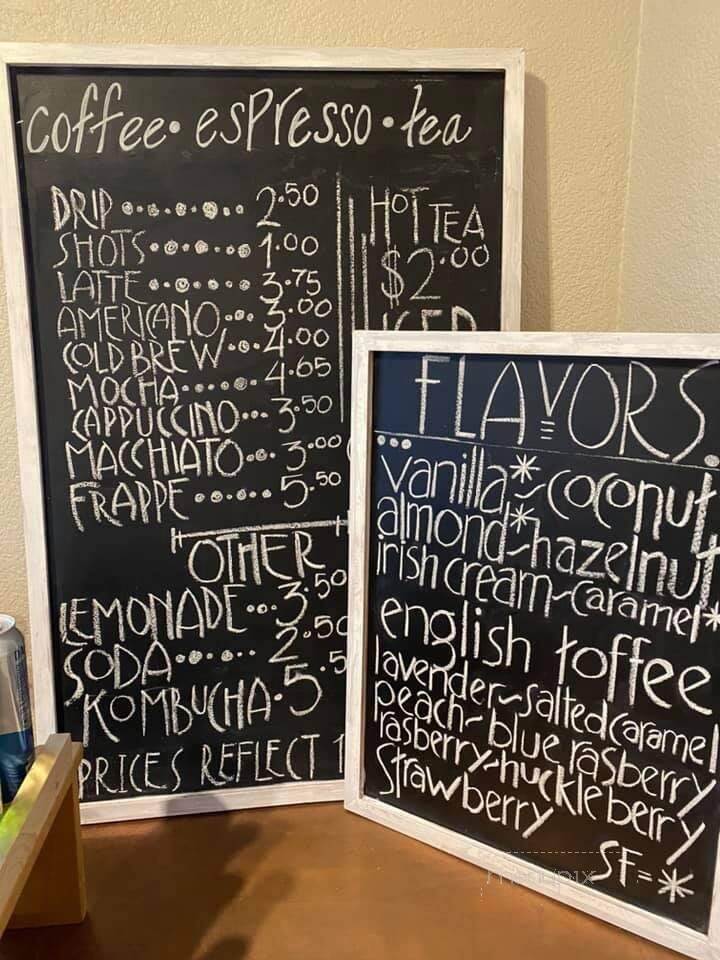 coffee • espresso • tea
DRIP ••••••• 2.50
SHOTS •••••• 1.00
LATTE •••••• 3.75
AMERICANO ••• 3.00
COLD BREW ••• 4.00
MOCHA ••••• 4.65
CAPPUCCINO ••• 3.50
MACCHIATO ••• 3.00
FRAPPE ••••• 5.50
HOT TEA
$2.00
ICED
OTHER
LEMONADE ••• 3.50
SODA ••••• 2.50
KOMBUCHA • 5.5
PRICES REFLECT 1
FLAVORS
vanilla*~coconut
almond*~hazelnut
irish cream~caramel*
english toffee
lavender~salted caramel
peach~blue rasberry
rasberry~huckleberry
strawberry
SF=*
menupix